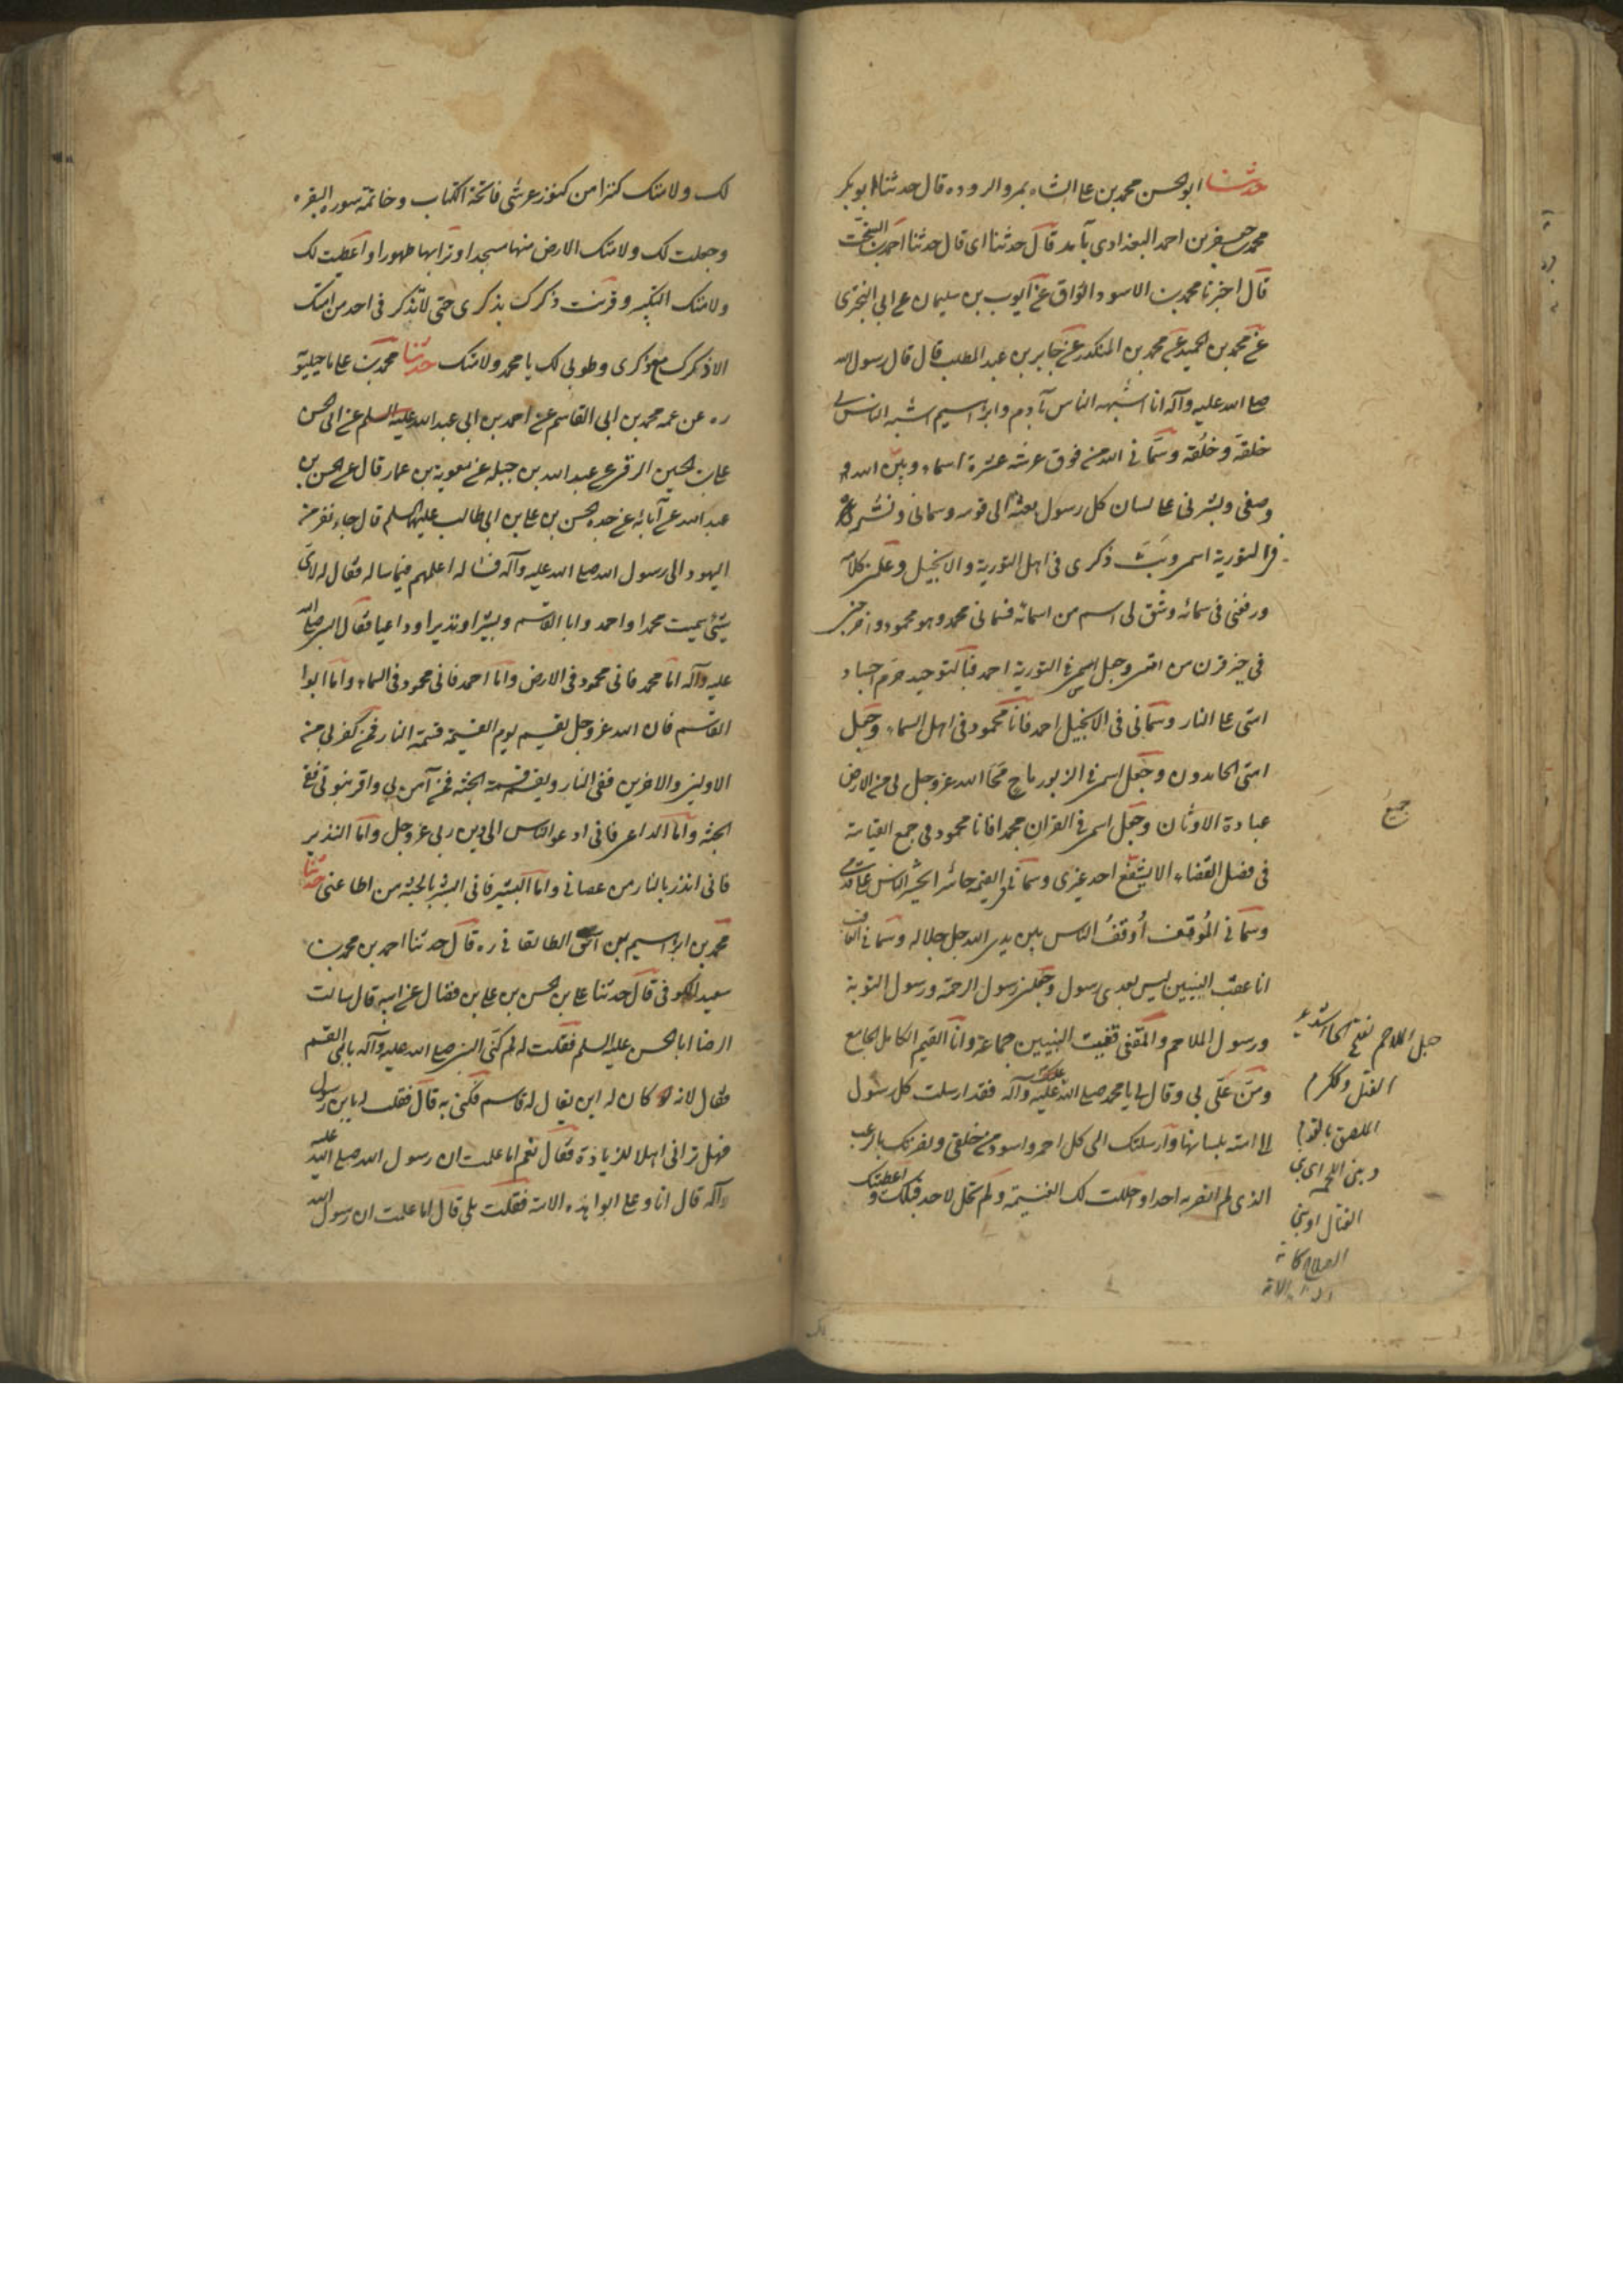 حدثنا ابو الحسن محمد بن علي الشاه بمرو الروده قال حدثنا ابو بكر
محمد بن جعفر بن احمد البغدادي بآمد قال حدثنا ابي قال حدثنا احمد بن السخت
قال اخبرنا محمد بن الاسود الوراق عن ايوب بن سليمان عن ابي البختري
عن محمد بن حميد عن محمد بن المنكدر عن جابر بن عبد المطلب قال قال رسول الله
صلى الله عليه وآله انا اشبه الناس بآدم وابراهيم اشبه الناس بي
خلقه وخلقه وسماني الله من فوق عرشه عشرة اسماء وبين الله
وصفي وبشر بي على لسان كل رسول بعثه الى قومه وسماني ونشر
في التورية اسمي وبث ذكري في اهل التورية والانجيل وعلمني كلامه
ورفعني في سمائه وشق لي اسم من اسمائه فسماني محمد وهو محمود واخرجني
في خير قرن من امتي وجعل اسمي في التورية احيد فبالتوحيد حرم اجساد
امتي على النار وسماني في الانجيل احمد فانا محمود في اهل السماء وجعل
امتي الحامدون وجعل اسمي في الزبور ماح محا الله عز وجل بي من الارض
عبادة الاوثان وجعل اسمي في القران محمدا فانا محمود في جمع القيامة
في فصل القضاء الا يشفع احد غيري وسماني في القيمة حاشرا يحشر الناس على قدمي
وسماني الموقف اوقف الناس بين يدي الله جل جلاله وسماني العاقب
انا عقب النبيين ليس بعدي رسول وجعلني رسول الرحمة ورسول التوبة
ورسول الملاحم والمقفي قفيت النبيين جماعة وانا القيم الكامل الجامع
ومن علي بي وقال لي يا محمد صلى الله عليك وآله فقد ارسلت كل رسول
الى امته بلسانها وارسلتك الى كل احمر واسود من خلقي ونصرتك بالرعب
الذي لم انصر به احدا واحللت لك الغنيمة ولم تحل لاحد قبلك واعطيتك
جميع
القتل
لك ولامتك كنزا من كنوز عرشي فاتحة الكتاب وخاتمة سوره البقره
وجعلت لك ولامتك الارض منها مسجدا وترابها طهورا واعطيت لك
ولامتك التكبير وقرنت ذكرك بذكري حتى لا يذكرني احد من امتك
الا ذكرك مع ذكري وطوبى لك يا محمد ولامتك حدثنا محمد بن علي ماجيلويه
ره عن عمه محمد بن ابي القاسم عن احمد بن ابي عبد الله عليه السلم عن ابي الحسن
علي بن الحسين الرقي عن عبد الله بن جبلة عن معوية بن عمار قال عن الحسن بن
عبد الله عن آبائه عن جده الحسن بن علي بن ابي طالب عليهما السلم قال جاء نفر من
اليهود الى رسول الله صلى الله عليه وآله فساله اعلمهم فيما ساله فقال له لاي
شيء سميت محمدا واحمد وابا القسم وبشيرا ونذيرا وداعيا فقال النبي صلى الله
عليه وآله اما محمد فاني محمود في الارض واما احمد فاني محمود في السماء واما ابوا
القسم فان الله عز وجل يقسم يوم القيمة قسمة النار فمن كفر بي من
الاولين والاخرين ففي النار ويقسم قسمة الجنة فمن آمن بي واقر بنبوتي ففي
الجنة واما الداعي فاني ادعو الناس الى دين ربي عز وجل واما النذير
فاني انذر بالنار من عصاني واما البشير فاني ابشر بالجنة من اطاعني حدثنا
محمد بن ابراهيم بن اسحق الطالقاني ره قال حدثنا احمد بن محمد بن
سعيد الكوفي قال حدثنا علي بن الحسن بن علي بن فضال عن ابيه قال سالت
الرضا ابا الحسن عليه السلم فقلت له لم كني النبي صلى الله عليه وآله بابي القسم
فقال لانه كان له ابن يقال له قاسم فكني به قال فقلت له يا بن رسول
فهل تراني اهلا للزيادة فقال نعم اما علمت ان رسول الله صلى الله عليه
وآله قال انا وعلي ابوا هذه الامة فقلت بلى قال اما علمت ان رسول الله